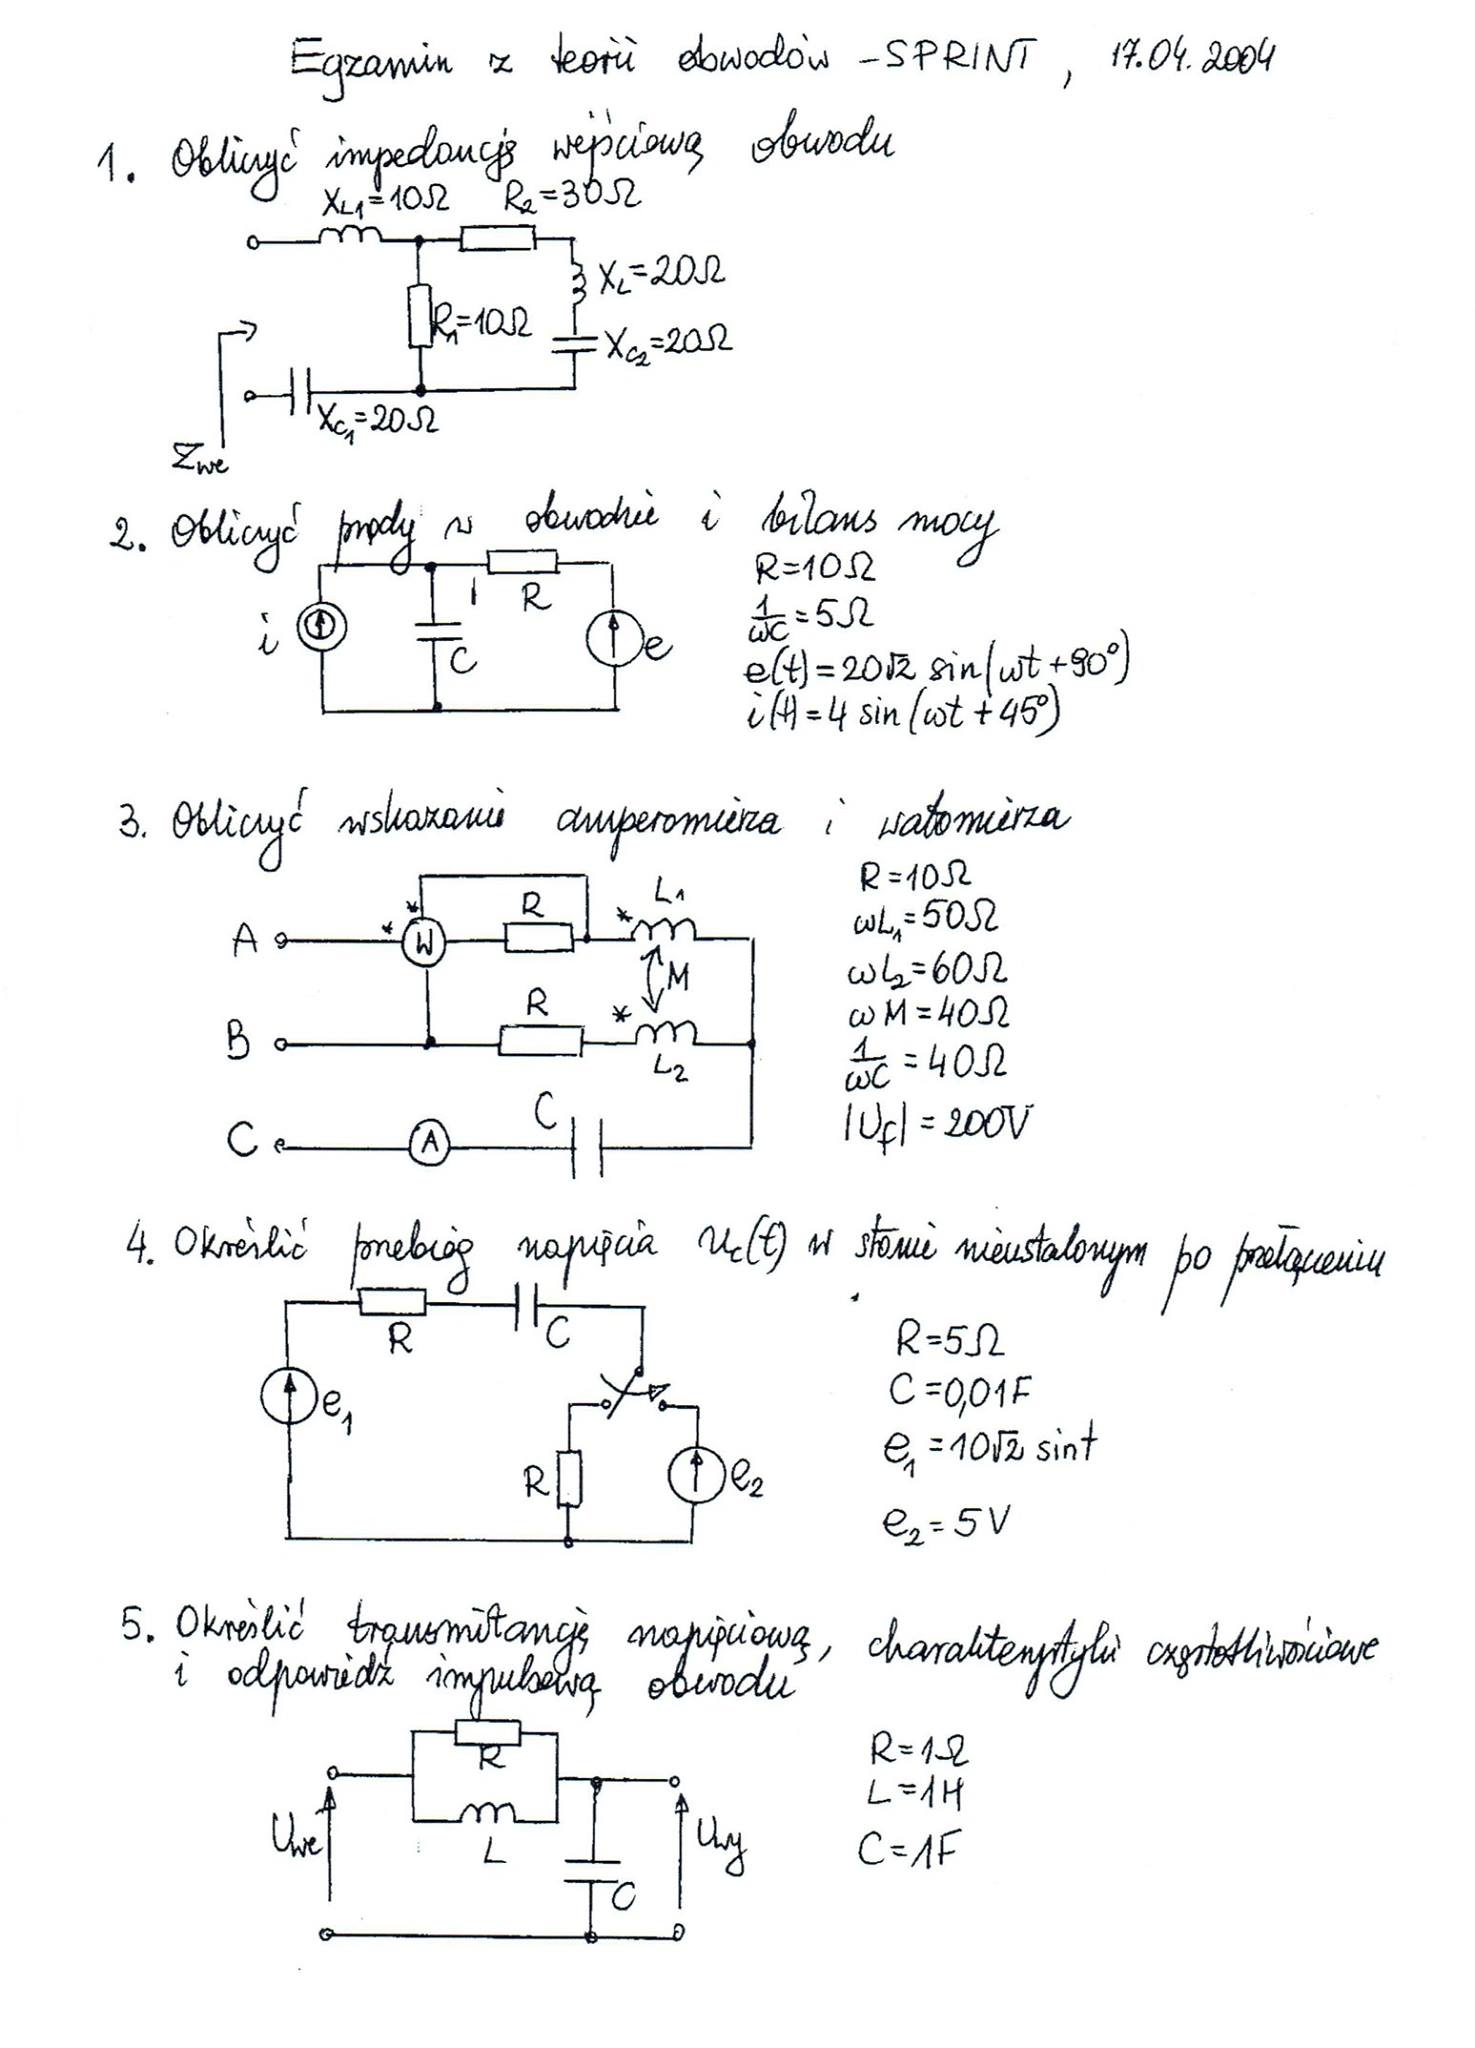 Egzamin z teorii obwodów - SPRINT, 17.04.2004
1. Obliczyć impedancję wejściową obwodu
XL1=10Ω R2=30Ω
XL=20Ω
R1=10Ω
XC2=20Ω
XC1=20Ω
Zwe
2. Obliczyć prądy w obwodzie i bilans mocy
R=10Ω
R
1/ωC = 5Ω
i
C
e
e(t)=20√2 sin(ωt+90°)
i(t)=4 sin(ωt+45°)
3. Obliczyć wskazanie amperomierza i watomierza
R=10Ω
R L1
* * *
A W
ωL1=50Ω
M
ωL2=60Ω
R *
ωM=40Ω
B
L2
1/ωC = 40Ω
C
|Uf| = 200V
C A
4. Określić przebieg napięcia uc(t) w stanie nieustalonym po przełączeniu
R C
R=5Ω
C=0,01F
e1
e1=10√2 sint
R e2
e2=5V
5. Określić transmitancję napięciową, charakterystyki częstotliwościowe
i odpowiedź impulsową obwodu
R
R=1Ω
L=1H
Uwe L Uwy
C=1F
C